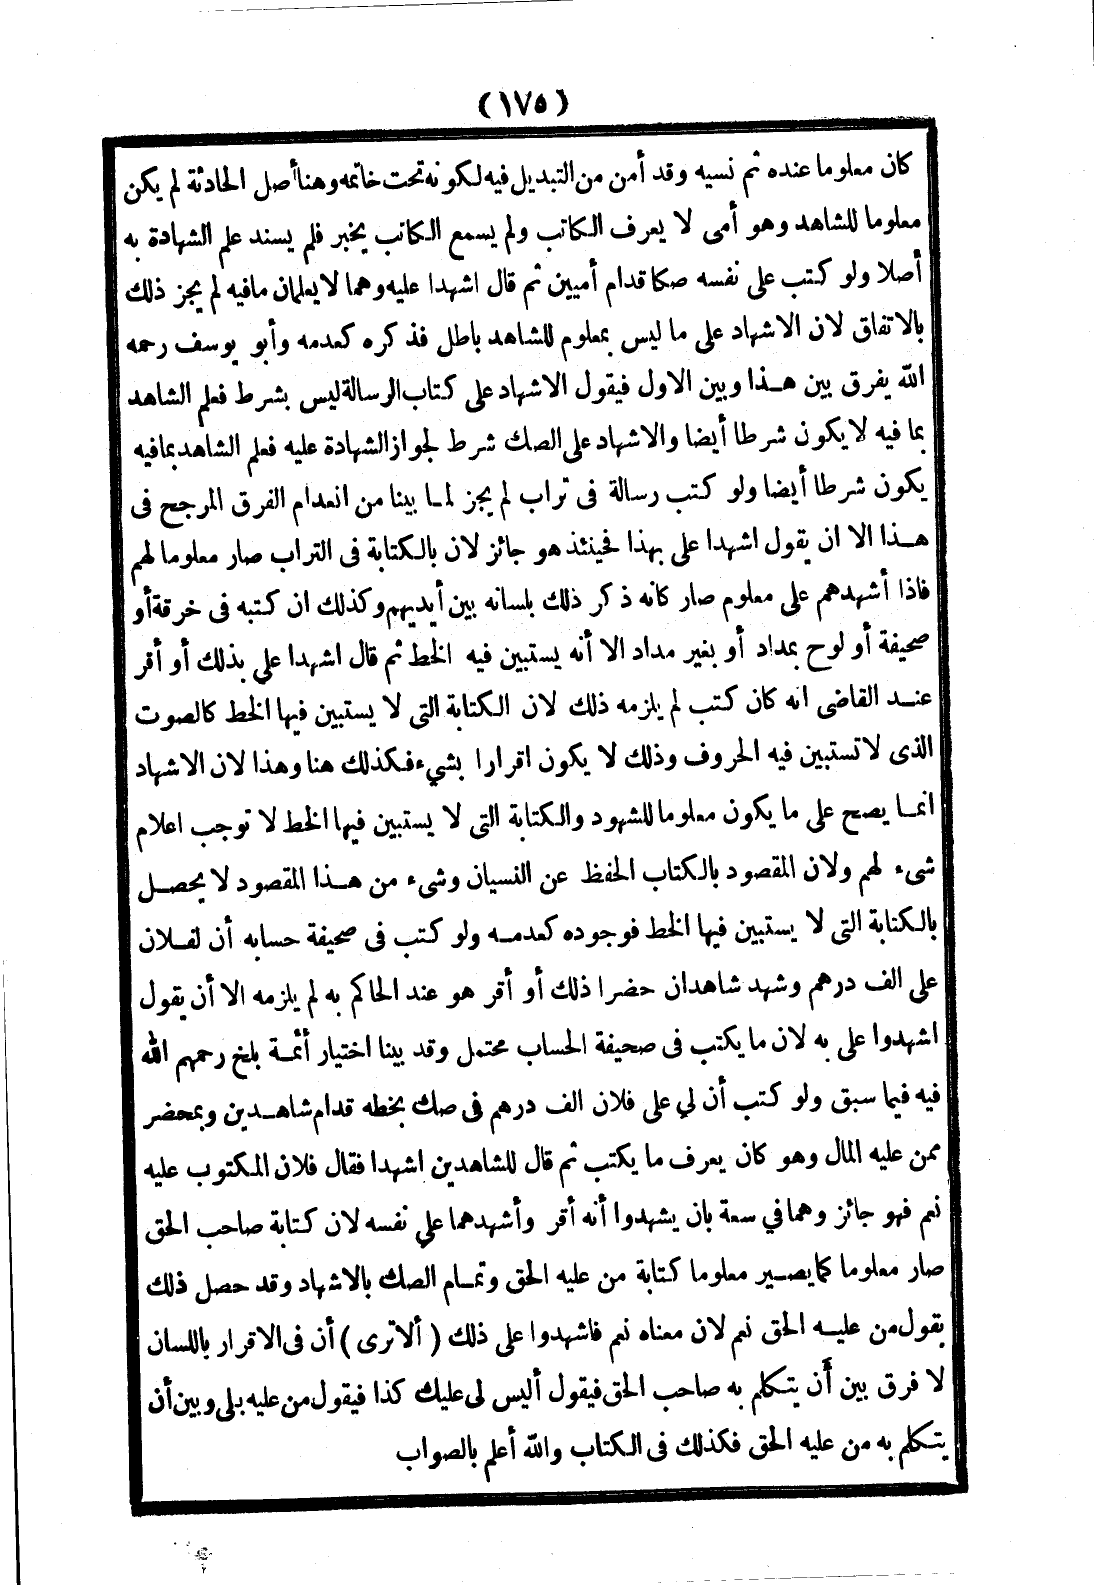 (١٧٥)
كان معلوما عنده ثم نسيه وقد أمن من التبديل فيه لكونه تحت خاتمه وهنا أصل الحادثة لم يكن
معلوما للشاهد وهو أمى لا يعرف الكاتب ولم يسمع الكاتب يخبر فلم يسند علم الشهادة به
أصلا ولو كتب على نفسه صكا قدام أميين ثم قال اشهدا عليه وهما لا يعلمان مافيه لم يجز ذلك
بالاتفاق لان الاشهاد على ما ليس بمعلوم للشاهد باطل فذكره كعدمه وأبو يوسف رحمه
الله يفرق بين هذا وبين الاول فيقول الاشهاد على كتاب الرسالة ليس بشرط فعلم الشاهد
بما فيه لا يكون شرطا أيضا والاشهاد على الصك شرط لجواز الشهادة عليه فعلم الشاهد بمافيه
يكون شرطا أيضا ولو كتب رسالة فى تراب لم يجز لما بينا من انعدام الفرق المرجح فى
هذا الا ان يقول اشهدا على بهذا فحينئذ هو جائز لان بالكتابة فى التراب صار معلوما لهم
فاذا أشهدهم على معلوم صار كانه ذكر ذلك بلسانه بين أيديهم وكذلك ان كتبه فى خرقة أو
صحيفة أو لوح بمداد أو بغير مداد الا أنه يستبين فيه الخط ثم قال اشهدا علي بذلك أو أقر
عند القاضى انه كان كتب لم يلزمه ذلك لان الكتابة التى لا يستبين فيها الخط كالصوت
الذى لا تستبين فيه الحروف وذلك لا يكون اقرارا بشيء فكذلك هنا وهذا لان الاشهاد
انما يصح على ما يكون معلوما للشهود والكتابة التى لا يستبين فيها الخط لا توجب اعلام
شىء لهم ولان المقصود بالكتاب الحفظ عن النسيان وشىء من هذا المقصود لا يحصل
بالكتابة التى لا يستبين فيها الخط فوجوده كعدمه ولو كتب فى صحيفة حسابه أن لفلان
على الف درهم وشهد شاهدان حضرا ذلك أو أقر هو عند الحاكم به لم يلزمه الا أن يقول
اشهدوا على به لان ما يكتب فى صحيفة الحساب محتمل وقد بينا اختيار أئمة بلخ رحمهم الله
فيه فيما سبق ولو كتب أن لي على فلان الف درهم فى صك بخطه قدام شاهدين وبمحضر
ممن عليه المال وهو كان يعرف ما يكتب ثم قال للشاهدين اشهدا فقال فلان المكتوب عليه
نعم فهو جائز وهما في سعة بان يشهدوا أنه أقر وأشهدهما علي نفسه لان كتابة صاحب الحق
صار معلوما كما يصير معلوما كتابة من عليه الحق وتمام الصك بالاشهاد وقد حصل ذلك
بقول من عليه الحق نعم لان معناه نعم فاشهدوا على ذلك (ألا ترى) أن فى الاقرار باللسان
لا فرق بين أن يتكلم به صاحب الحق فيقول أليس لى عليك كذا فيقول من عليه بلى وبين أن
يتكلم به من عليه الحق فكذلك فى الكتاب والله أعلم بالصواب